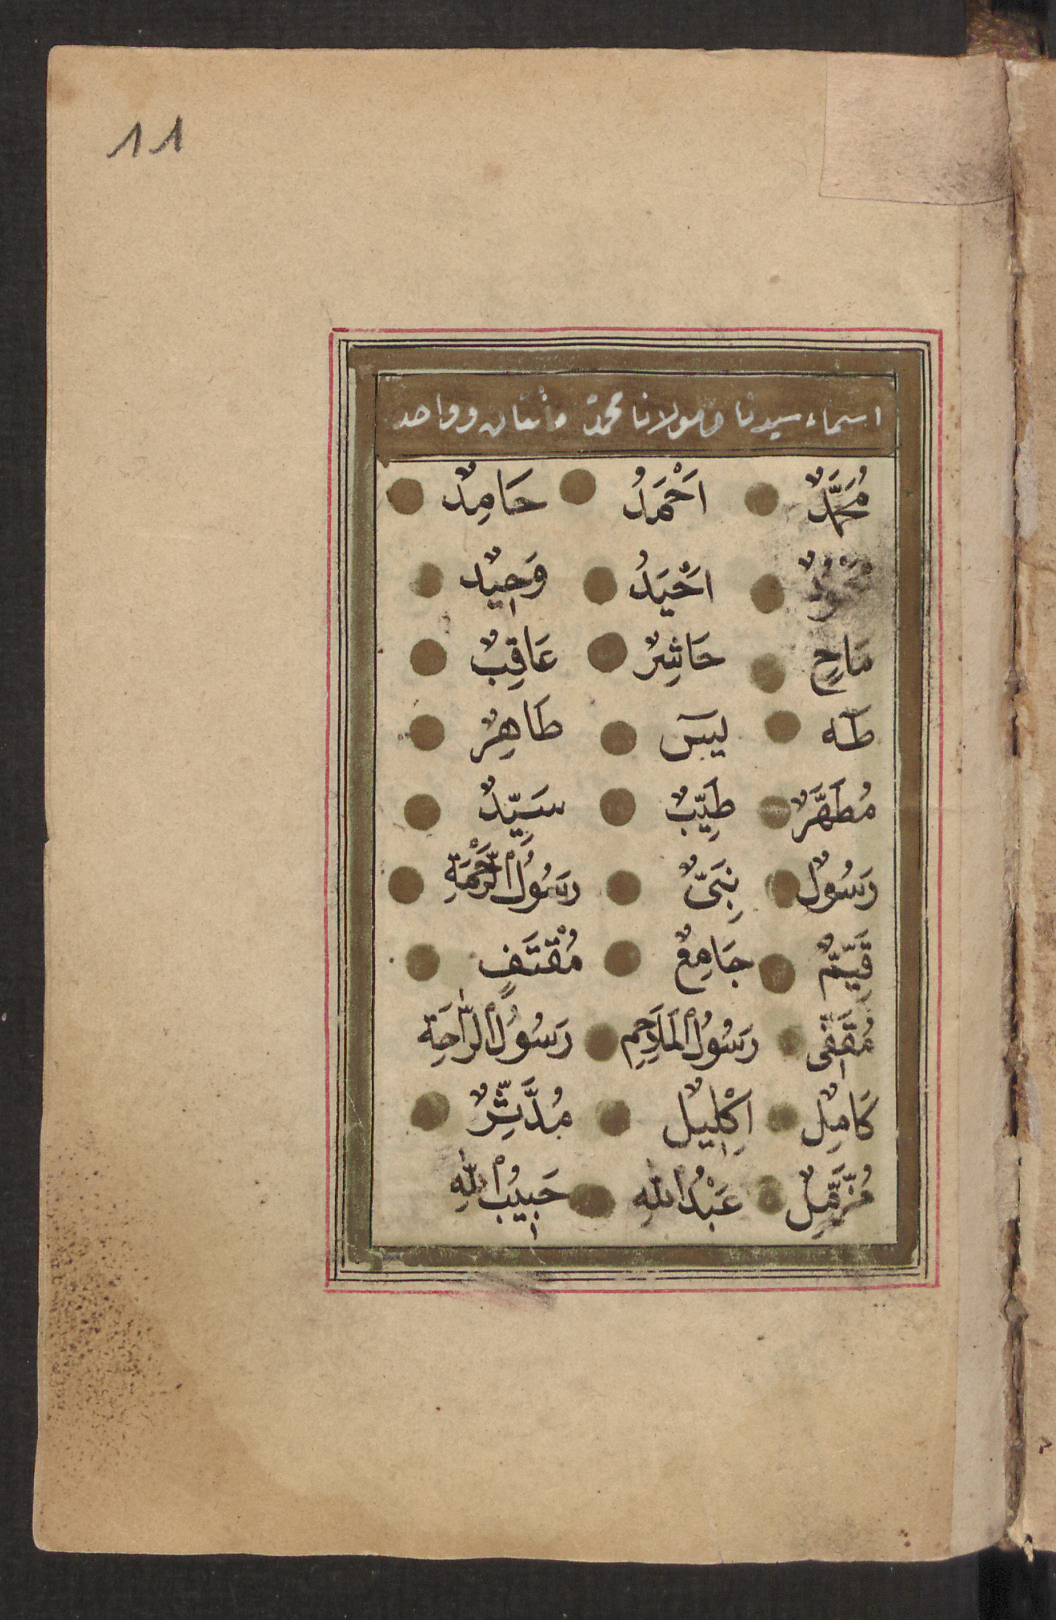 11
اسماء سيدنا ومولانا محمد مائتان وواحد
مُحَمَّدٌ اَحْمَدُ حَامِدٌ
اَحْيَدُ وَحِيدٌ
مَاحٍ حَاشِرٌ عَاقِبٌ
طَه يٰسٓ طَاهِرٌ
مُطَهَّرٌ طَيِّبٌ سَيِّدٌ
رَسُولٌ نَبِىٌّ رَسُولُ الرَّحْمَةِ
قَيِّمٌ جَامِعٌ مُقْتَفٍ
مُقَفًّى رَسُولُ الْمَلَاحِمِ رَسُولُ الرَّاحَةِ
كَامِلٌ اِكْلِيلٌ مُدَّثِّرٌ
مُزَّمِّلٌ عَبْدُ اللّٰهِ حَبِيبُ اللّٰهِ